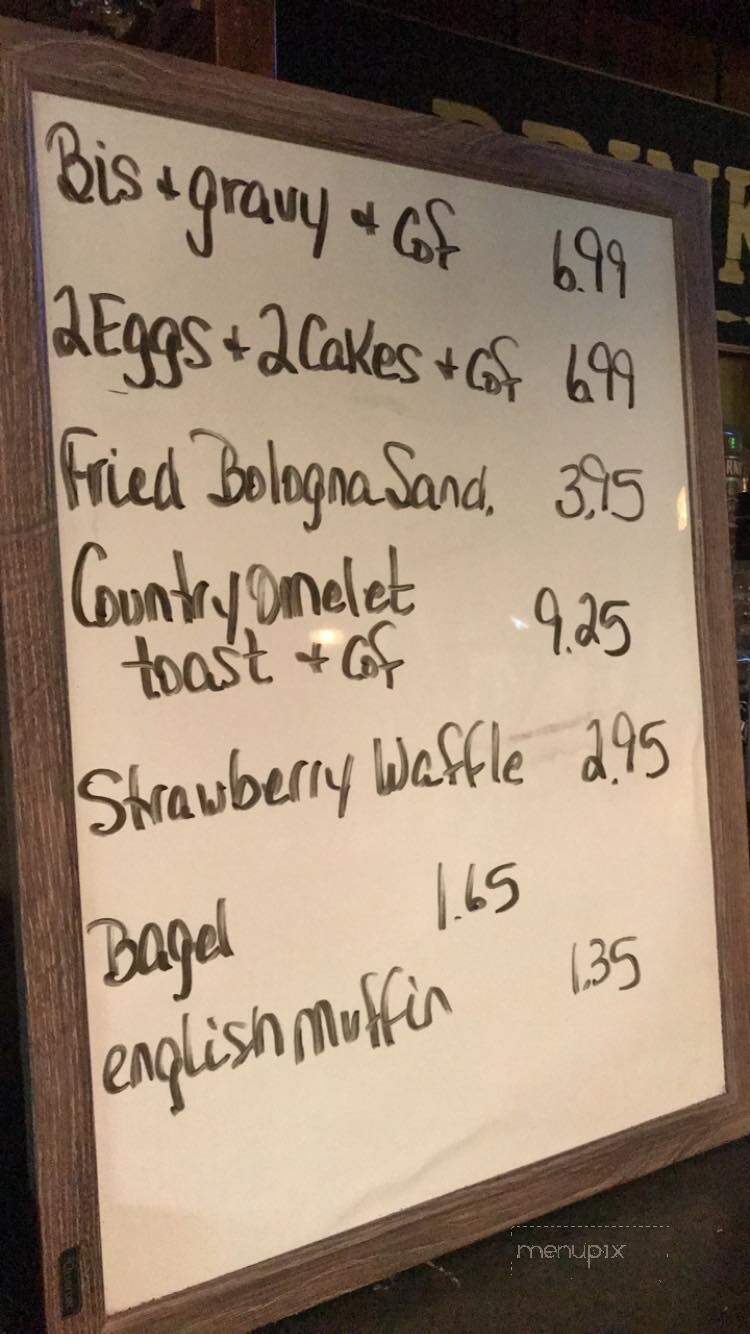 Bis + gravy + Cof 6.99
2 Eggs + 2 Cakes + Cof 6.99
Fried Bologna Sand. 3.95
Country omelet
toast + Cof 9.25
Strawberry Waffle 2.95
Bagel 1.65
english muffin 1.35
menupix